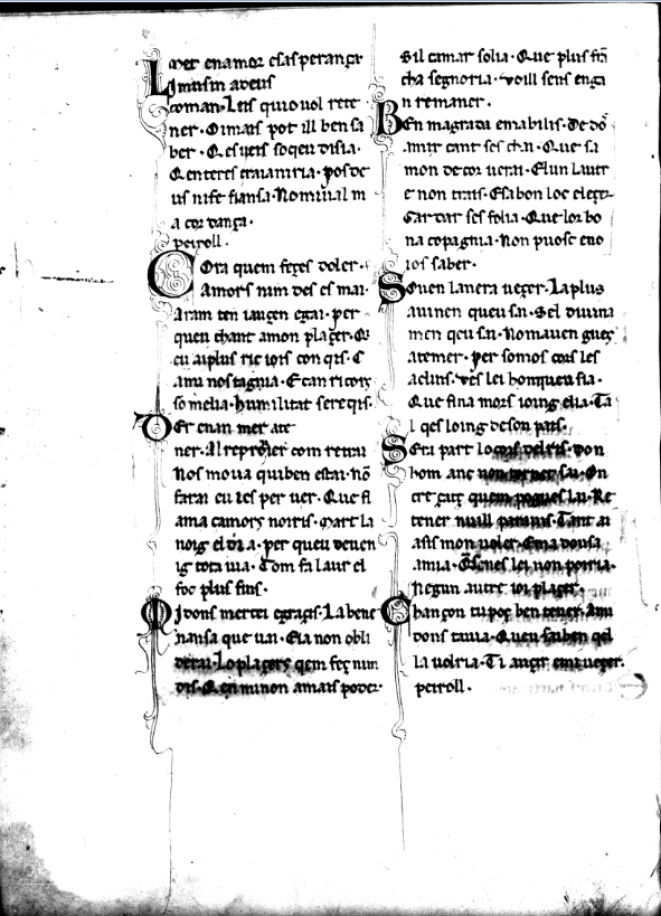 Mer enamor esasperança
Limusin adeus
coman. Leis quiouol rete
ner. Oimais pot ill ben sa
ber. Qesuers soqeu disia.
Qenteres traianiria. pos de
us nife fiansa. Nomiual m
a cordança.
peiroll.
Cora quem feçes doler.
Amors nim des es mai.
Aram ten iausen egai. per
queu chant amon plaçer. Q
eu aiplus ric iois con qis. E
amu nostagnia. E can ricors
somelia. humilitat sereqis.
er enan mer ate
ner. Al com retrai
Nos moua quiben estai. nõ
farai eu ies per uer. Que fi
ama camors noiris. mart la
noig eldia. per queu deuen
ig tota uia. Com fa laur el
foc plus fins.
Midons mercei egraçis. La bene
nansa que uai. Eia non obli
derai. Lo plaçers qem feç nim
dis. Qen minon amais poder
Sil camar solia. Que plus frã
cha segnoria. voill sens enga
n remaner.
Ben magrada emabilis. De dõ
amir cant ses chn. Que sa
mon decor uerai. Elun lautr
e non trais. Esabon loc eleger
Gardar ses folia. Que lor bo
na copagnia. Non puosc eno
ios saber.
Souen lanera ueçer. La plus
auinen queu sn. Sel diuina
men qeu sn. No mauen gueç
atemer. per somos cors les
aclins. ves lei honqueu sia.
Que fina mors ioing elia. Ta
l qes loing deson pais.
Sera part von
hom anc
cre çuç quem pogues lai. Re
tener nuill Tant ai
asis mon uoler. Ema donsa
amia. lei non poiria.
Negun autre ioi plaçer.
Chançon tu poç ben tener. Ami
dons tauia. Queu saiben qel
la uolria. Ti auçir ueçer.
peiroll.